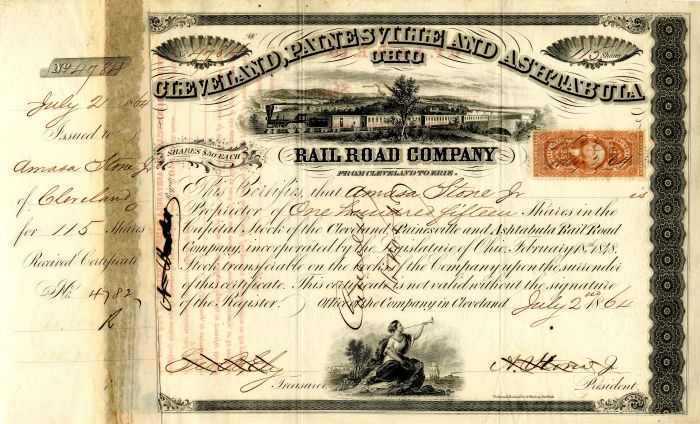 No. 4784
July 2 1864
Issued to
Amasa Stone Jr
of Cleveland
O
for 115 Shares
Received Certificate
No. 4782
4784
115 Shares
CLEVELAND, PAINESVILLE AND ASHTABULA
OHIO
SHARES $50 EACH
RAIL ROAD COMPANY
FROM CLEVELAND TO ERIE.
This Certifies, that Amasa Stone Jr is
Proprietor of One Hundred fifteen Shares in the
Capital Stock of the Cleveland, Painesville and Ashtabula Rail Road
Company, incorporated by the Legislature of Ohio, February 18th 1848.
Stock transferable on the books of the Company upon the surrender
of this certificate. This certificate is not valid without the signature
of the Register. Office of the Company in Cleveland July 2nd 1864
Cancelled
A. Stone Jr
Treasurer.
President.